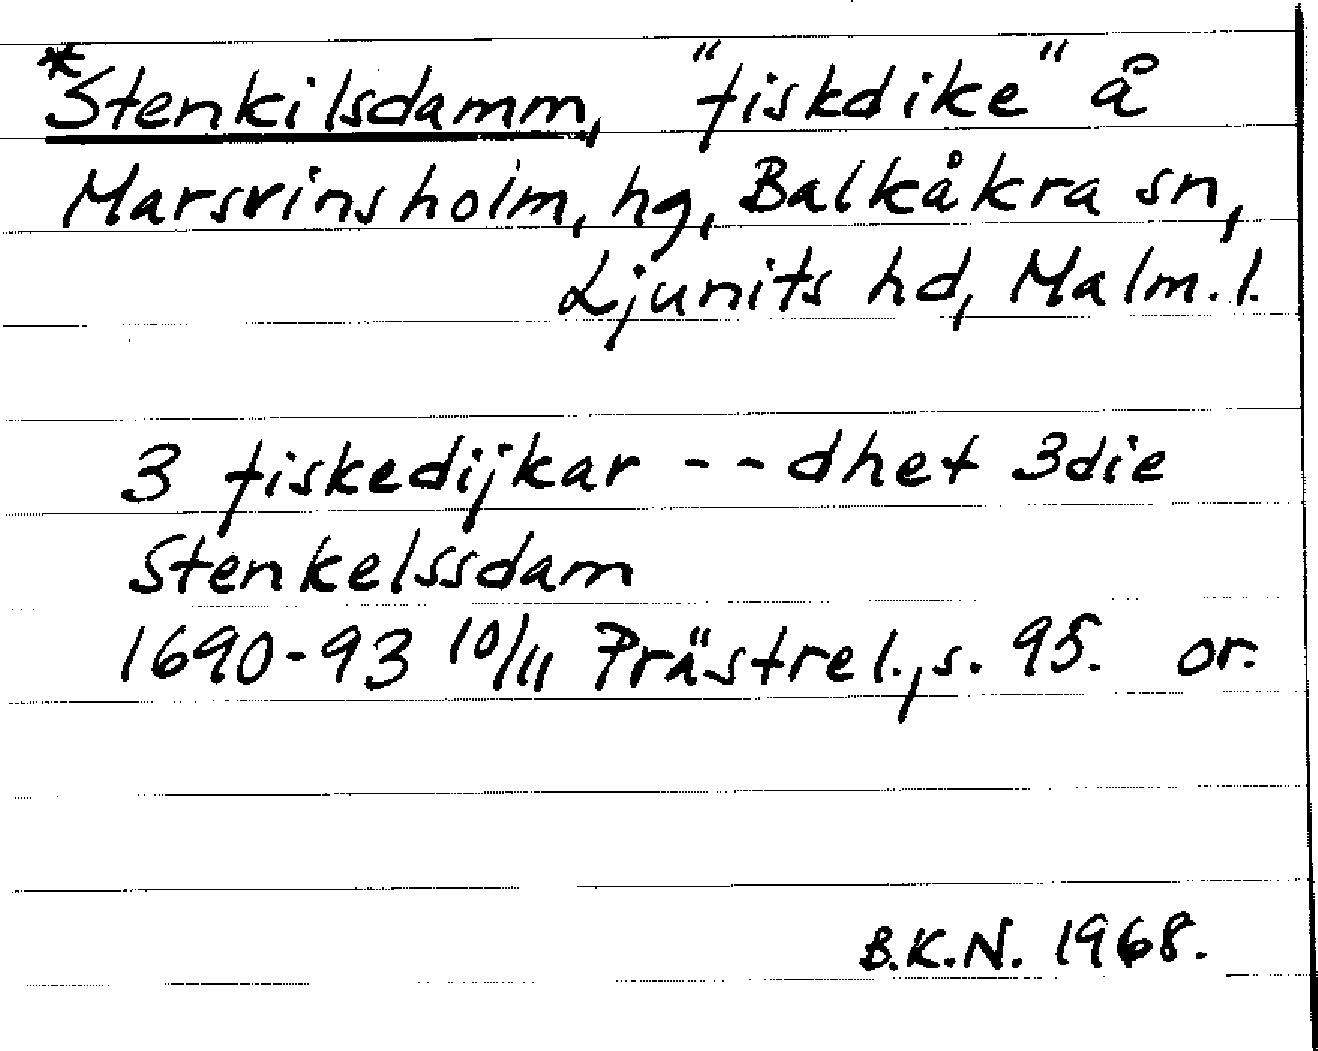 *Stenkilsdamm, "fiskdike" å
Marsvinsholm, hg, Balkåkra sn,
Ljunits hd, Malm. l.
3 fiskedijkar -- dhet 3die
Stenkelssdam
1690-93 10/11 Prästrel., s. 95. or.
B.K.N. 1968.